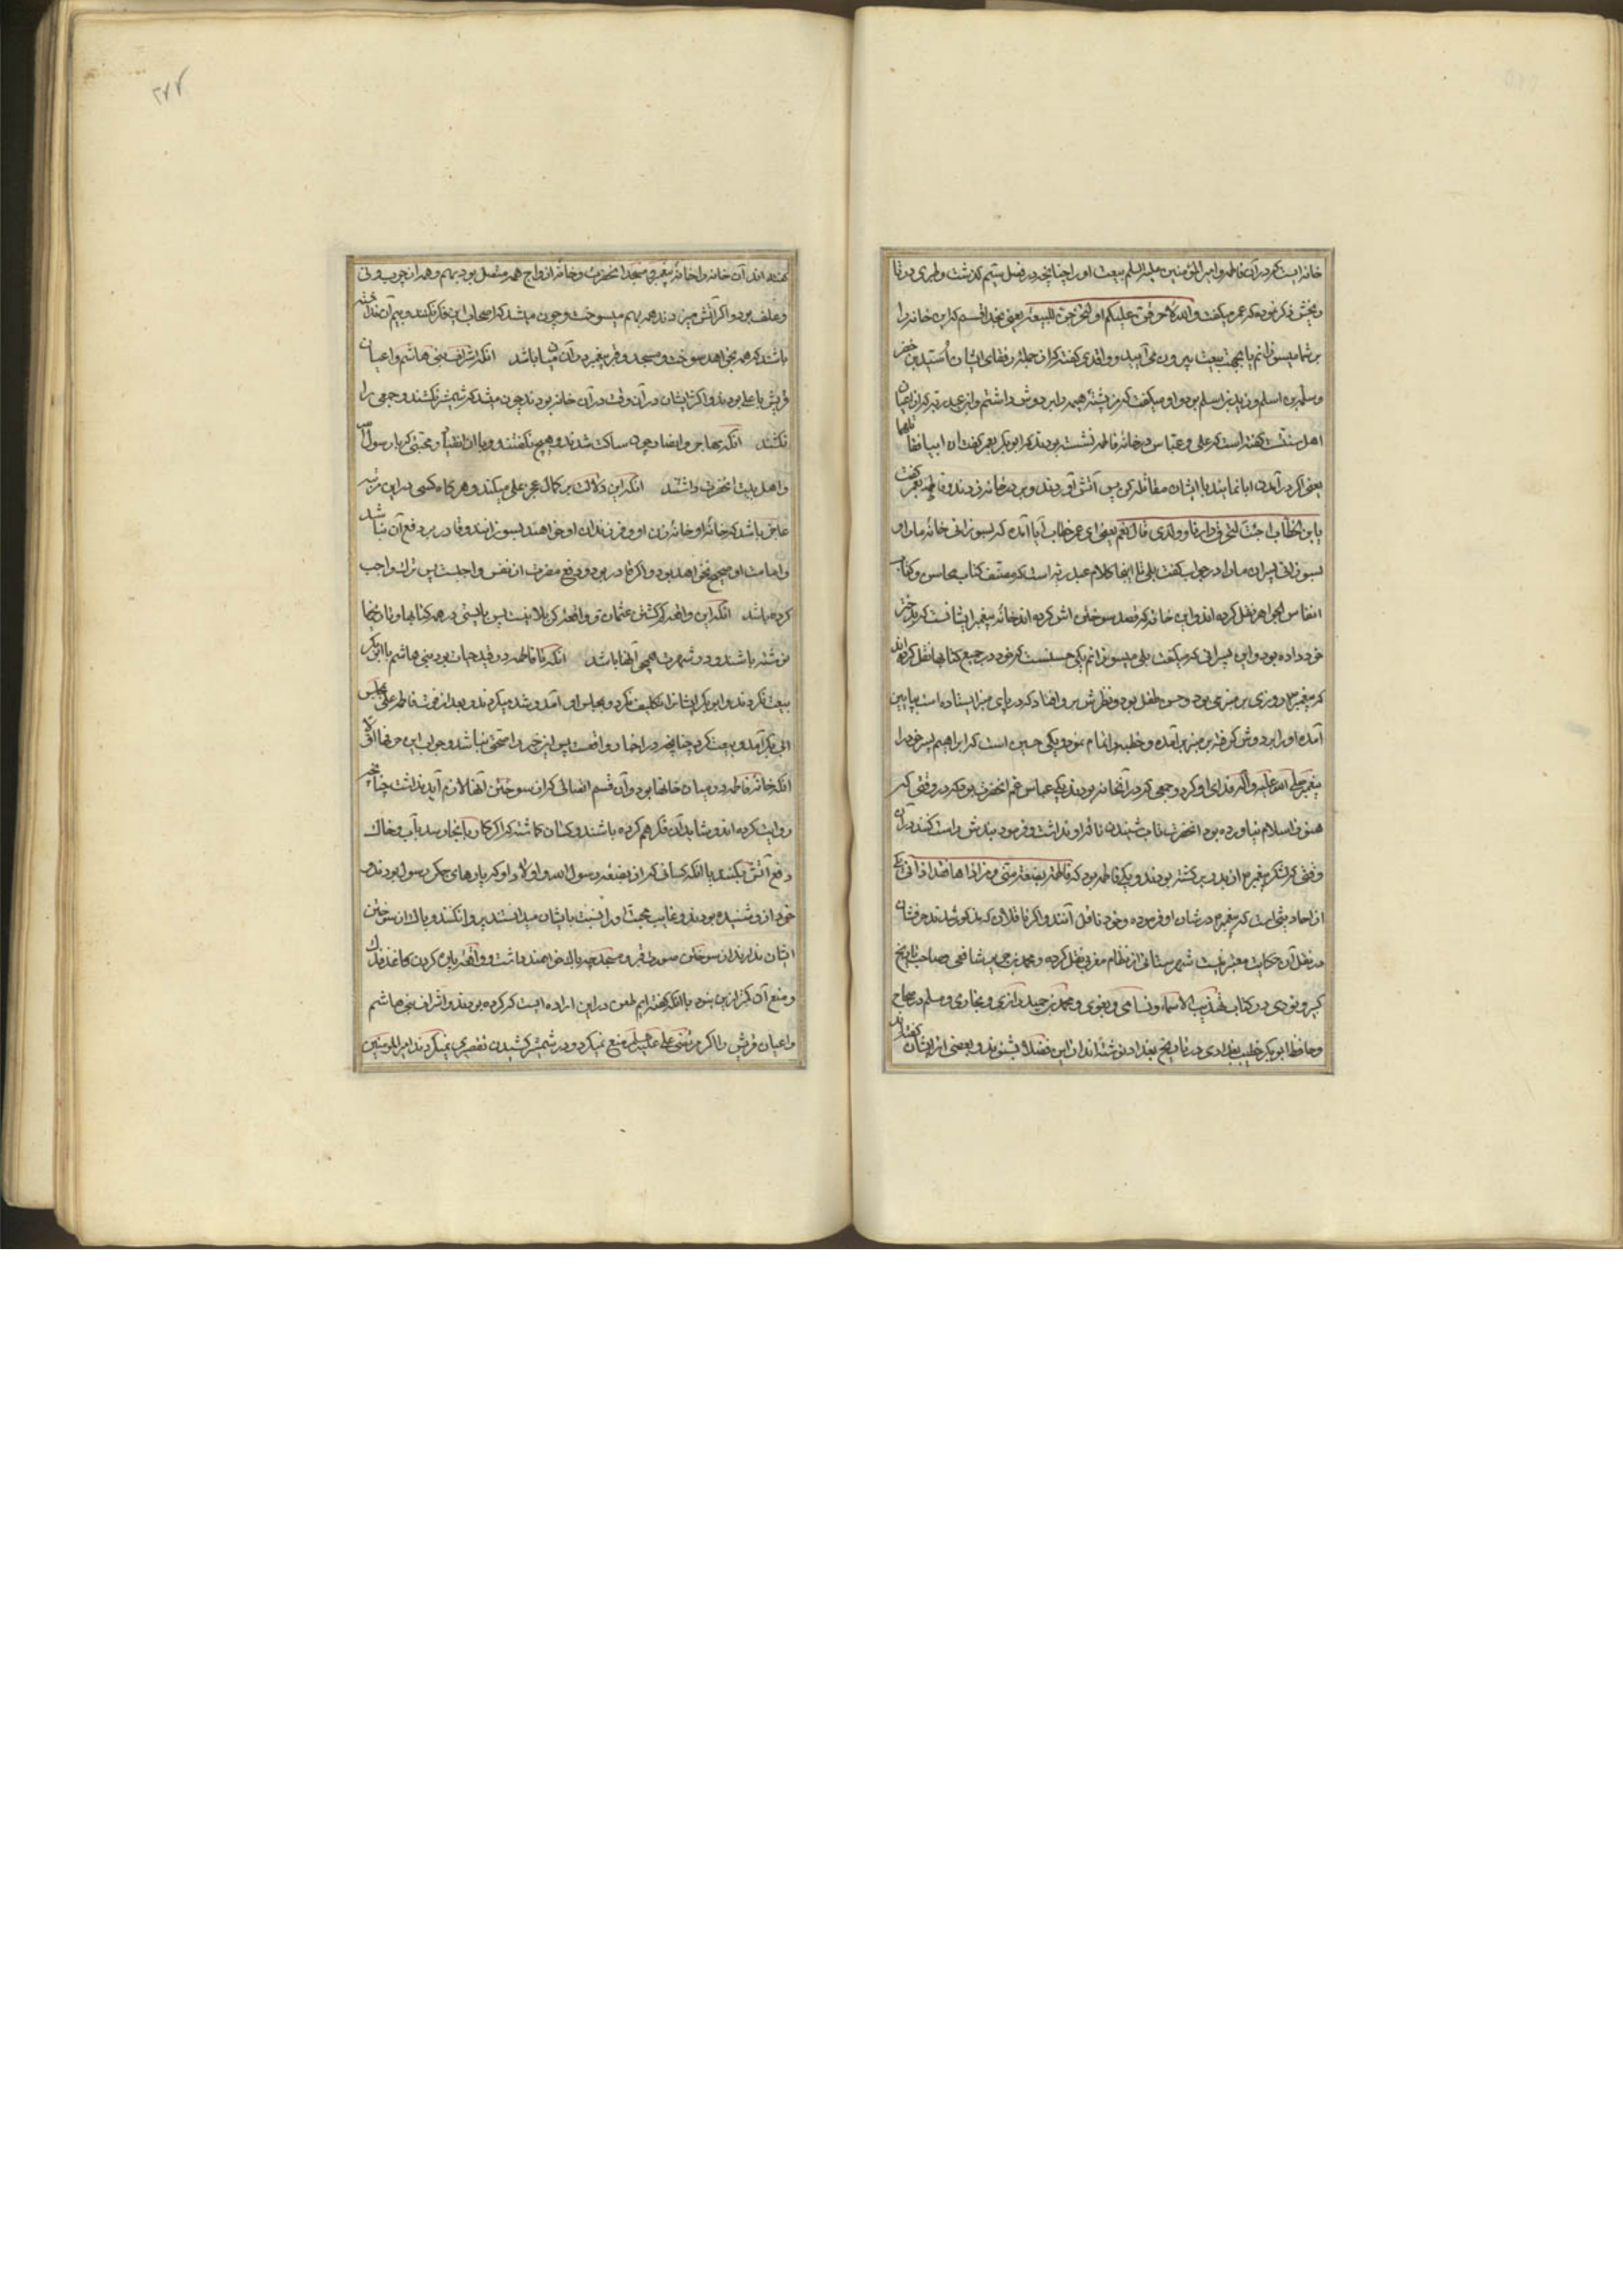 خانه ایست که در آن فاطمه و امیر المؤمنین علیه السلم بیعت او را چنانچه در فصل ستیم گذشت و طبری در تا
ریخش ذکر نموده که عمر میگفت والله لاحرقن علیکم او لتخرجن للبیعة یعنی بخدا قسم که این خانه را
بر شما میسوزانم یا بجهت بیعت بیرون می آیید و واقدی گفته که از جمله رفقای ایشان اُسَید بن حضر
و سلمة بن اسلم و زید بن اسلم بود و او میگفت که من پشتۀ هیمه را بر دوش داشتم و ابن عبد ربه که از اعیان
اهل سنت گفته است که علی و عباس در خانۀ فاطمه نشسته بودند که ابو بکر بعمر گفت ان ابیا فقاتلهما
یعنی اگر در آمدن ابا نمایند با ایشان مقاتله کن پس آتش آوردند و بر در خانه زدند و فاطمه بعمر گفت
یا بن الخطاب اجئت لتحرق دارنا و ولدی قال نعم یعنی ای عمر خطاب آیا آمدۀ که بسوزانی خانۀ ما را و
بسوزانی پسران ما را در جواب گفت بلی تا اینجا کلام عبد ربه است که مصنف کتاب محاسن و کتاب
انفاس الجواهر نقل کرده اند و این خانه که قصد سوختن اش کرده اند خانۀ پیغمبر ایشانست که بدختر
خود داده بود و این پسرانی که میگفت بلی میسوزانم یکی حسنست که خود در جمیع کتابها نقل کرده اند
که پیغمبر روزی بر منبر می بود و حسن طفل بود و نظرش بر او افتاد که در پای منبر ایستاده است بپایین
آمده او را بر دوش گرفته بر منبر بر آمده و خطبه را تمام نمود و یکی حسین است که ابراهیم پسر خود را
پیغمبر صلی الله علیه و آله فدای او کرد و جمعی که در آنخانه بودند یکی عباس عم انحضرت بود که در وقتی که
هنوز اسلام نیاورده بود انحضرت تاب شنیدن نالۀ او نداشت و فرمود بندش را سست کنند در آن
وقتی که لشکر پیغمبر از بدر بر گشته بودند و یکی فاطمه بود که فاطمة بضعة منی من اذاها فقد اذانی یکی
از احادیثی است که پیغمبر در شان او فرموده و خود ناقل آنند و اگر ناقلان که مذکور شدند حرفشان
در نقل آن حکایت معتبر نیست شهرستانی از نظام معتزلی نقل کرده و محمد بن جریر شافعی صاحب تاریخ
کبیر و نووی در کتاب تهذیب الاسماء و نسامی و بغوی و محمد بن حمید رازی و بخاری و مسلم در صحاح
و حافظ ابو بکر خطیب بغدادی در تاریخ بغداد نوشته اند از این فضلا بشنوند و بعضی از ایشان گفته اند
آن خانه را خانۀ پیغمبر و مسجد انحضرت و خانۀ ازواج همه متصل بود بهم و همه از چوب و نی
و علف بود و اگر آتش میزدند همه بهم میسوخت و چون میشد که اصحاب این فکر نکنند و بیم آن نداشته
باشند که همه بخواهد سوخت و مسجد و قبر پیغمبر در آن میان باشد انکه اشراف بنی هاشم و اعیان
قریش با علی بودند و اکثر ایشان در آن وقت در آن خانه بودند چون میشد که شمشیر نکشند و جمعی را
نکشند انکه مهاجر و انصار چون ساکت شدند و هیچ نگفتند و با آن انقیاد و محبتی که با رسول ص
و اهل بیت انحضرت داشتند انکه این دلالت بر کمال عجز علی میکند و هر گاه کسی در این مرتبه
عاجز باشد که خانۀ او خانۀ زن او و فرزندان او خواهند بسوزانند و قادر بر دفع آن نباشد
و امامت او صحیح نخواهد بود و اگر قادر بود و دفع مضرت از نفس واجبست پس ترک واجب
کرده باشد انکه این واقعه از کشتن عثمان و واقعۀ کربلا نیست پس بایستی در همه کتابها و تاریخها
نوشته باشند و در شهرت همچو آنها باشد انکه تا فاطمه در قید حیات بود بنی هاشم با ابی بکر
بیعت نکردند و ابو بکر ایشانرا تکلیف نکرد و بمجلس او آمد و شد میکردند و بعد از فوت فاطمه علی بمجلس
ابی بکر آمد و بیعت کرد چنانچه در اخبار واقعست پس این خبر راست نباشد و جواب این حرفها اوّلا
انکه خانۀ فاطمه در میان خانها بود و آن قسم اتصالی که از سوختن آنها لازم آید نداشت چنانچه
روایت کرده اند و شاید آن فکر هم کرده باشند و کسان گماشته که اگر کار بآنجا رسد بآب و خاک
دفع آتش بکنند با انکه کسانی که از بضعۀ رسول الله و اولاد او که پارهای جگر رسول بودند و
خود از و شنیده بودند و غایت محبت او را نسبت بایشان میدانستند پروا نکنند و باک از سوختن
ایشان ندارند از سوختن صورت قبر و مسجد چه باک خواهند داشت و واقعۀ پاره کردن کاغذ فدک
و منع آن کمتر ازین نبود با انکه گفته ایم طعن در این اراده ایست که کرده بودند و اشراف بنی هاشم
و اعیان قریش را اگر مرتضی علی علیه السلم منع نمیکرد و در شمشیر کشیدن تقصیری نمیکردند امیر المومنین